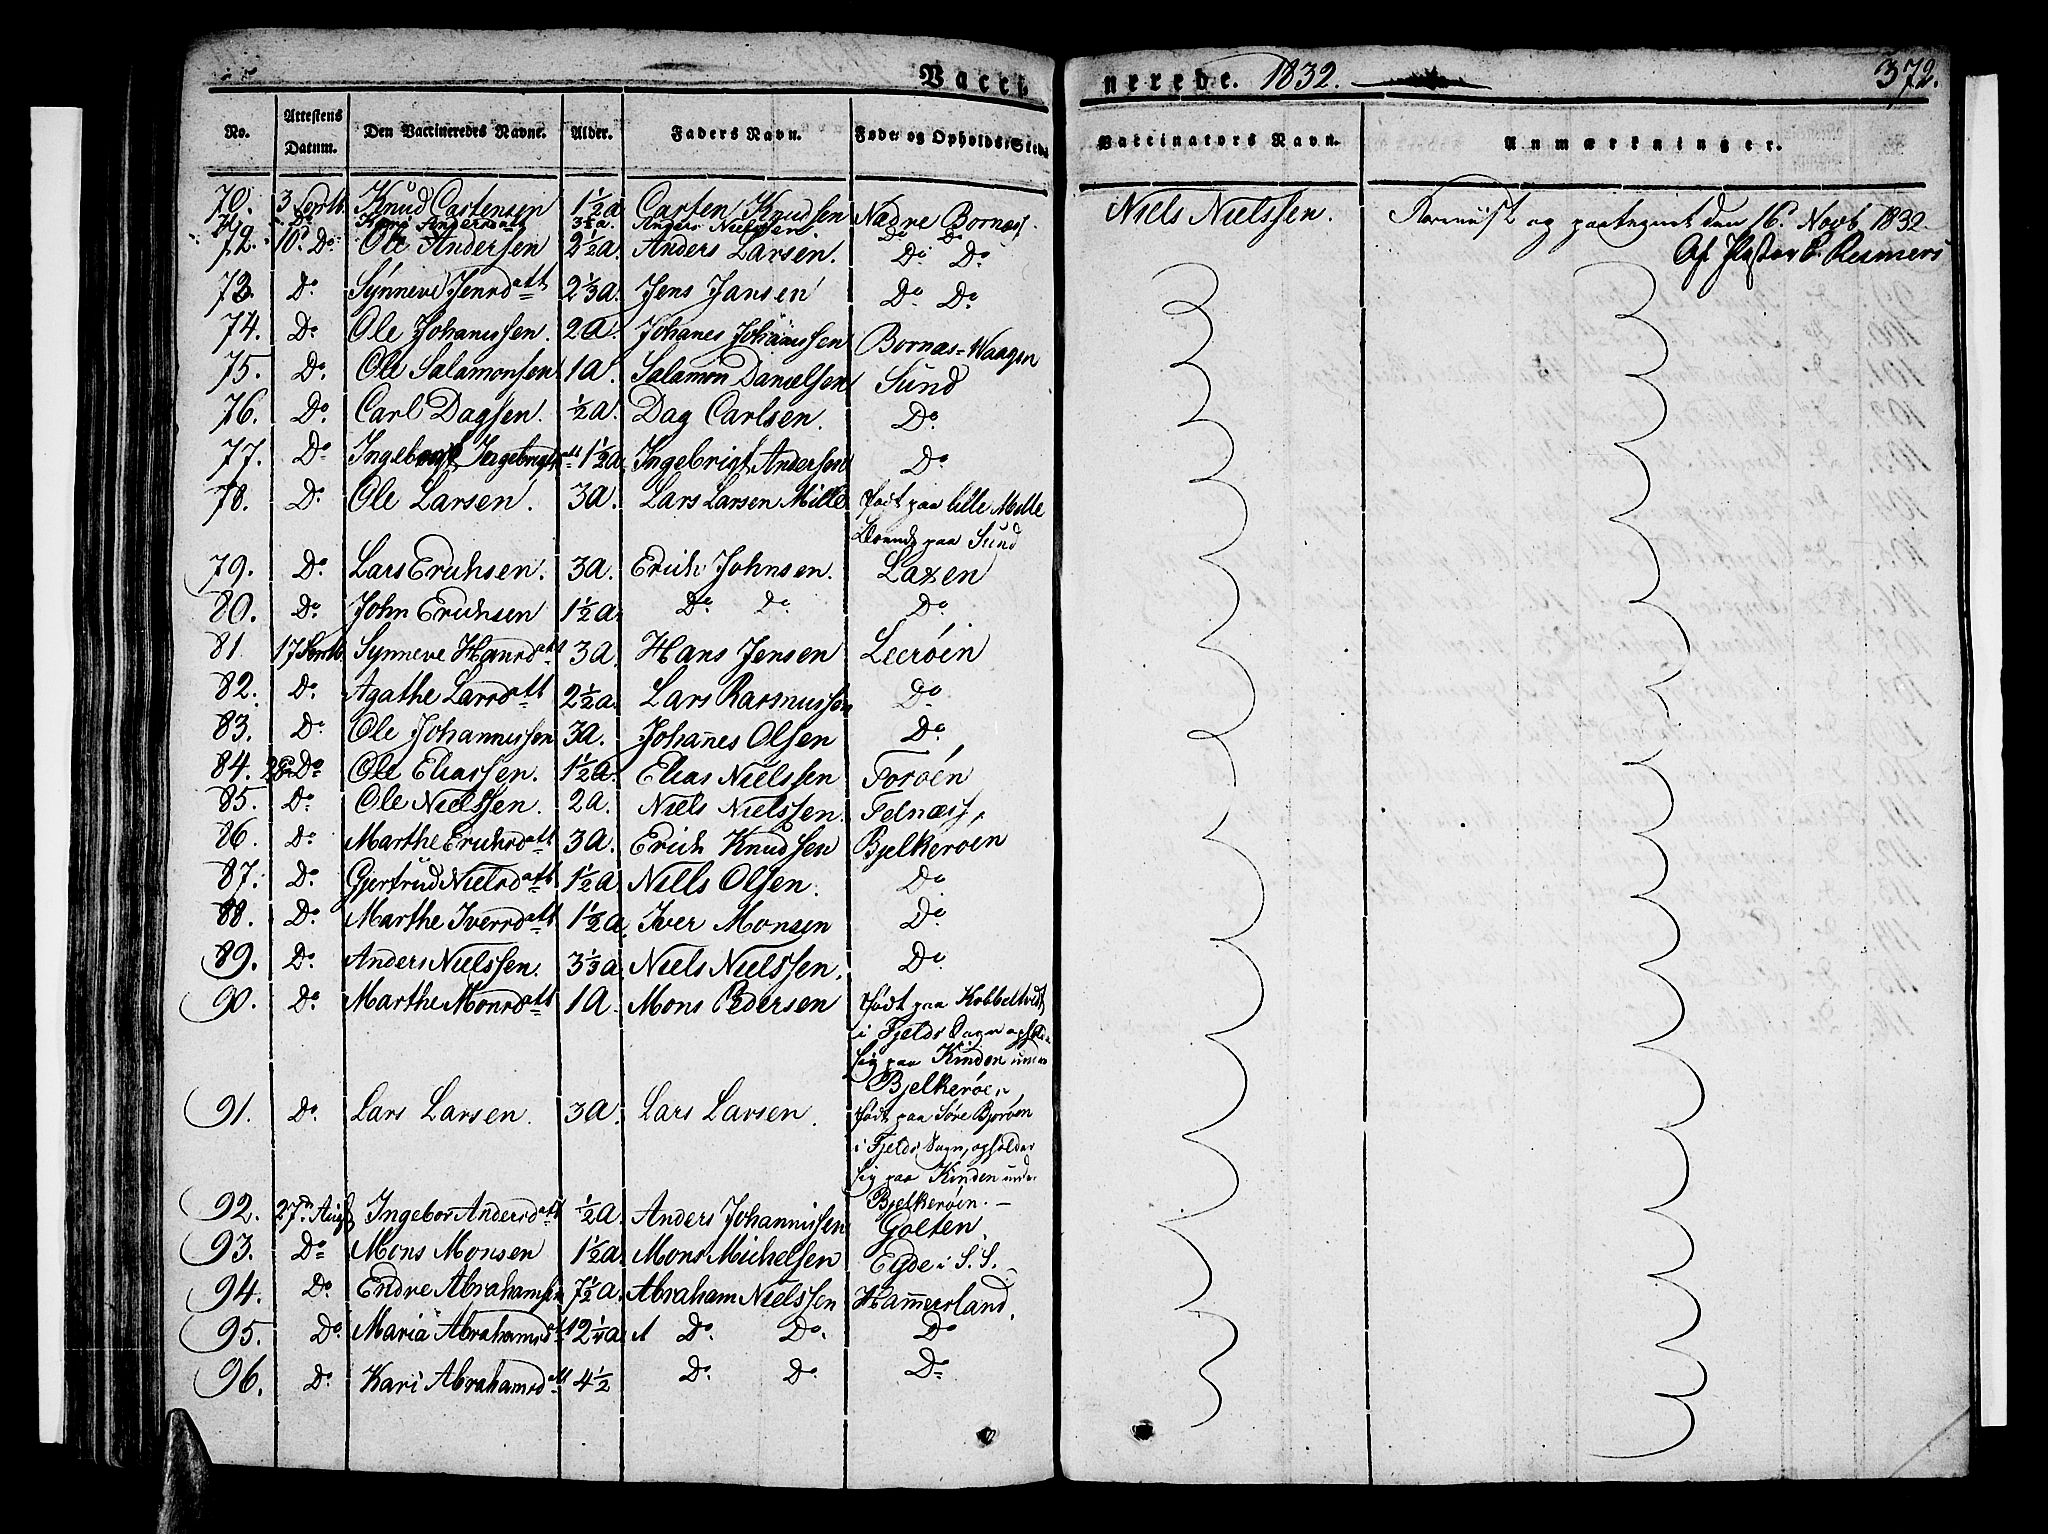 Vacci
nerede. 1832.
372.
No. Attestens Datum. Den Vaccineredes Navne. Alder. Faders Navn. Føde- og Opholds-Sted
Vaccinators Navn. Anmærkninger.
70. 3 Septb Knud Carstensen 1½a Carsten Knudsen Nædre Bornæs Niels Nielssen. og paategnet den 16d Novb 1832.
71. Do Anders Nielssen. Do Do Af Pastor Resmers
72. 10d Do Ole Andersen 2½a. Anders Larsen. Do Do
73. Do Synneve Jensdatt 2⅓a. Jens Jansen Do Do
74. Do Ole Johanissen. 2a. Johanes Johanissen Bornæs-Waagen
75. Do Ole Salamonsen 1a. Salamon Danielsen Sund
76. Do Carl Dagsen. ½a. Dag Carlsen. Do
77. Do 1½a. Ingebrigt Andersen Do
78. Do Ole Larsen. 3a. Lars Larsen Mille født paa lille Mille
paa Sund
79. Do Lars Erichsen. 3a. Erich Johnsen. Laxen
80. Do John Erichsen 1½a. Do Do Do
81. 17 Septb Synneve Hansdatt 3a. Hans Jensen Leerøen
82. Do Agathe Larsdatt 2½a. Lars Rasmussen Do
83. Do Ole Johannissen 3a. Johañes Olsen Do
84. Do Ole Eliassen. 1½a. Elias Nielssen Toroën
85. Do Ole Nielssen. 2a. Niels Nielssen. Telnæss,
86. Do Marthe Erichsdatt 3a. Erich Knudssen Bjelkeroen
87. Do Gjertrud Nielsdatt 1½a. Niels Olsen. Do
88. Do Marthe Iversdatt 1½a. Iver Monsen Do
89. Do Anders Nielssen. 3⅓a Niels Nielssen. Do
90. Do Marthe Monsdatt 1a. Mons Pedersen født paa Kobbeltvedt
i Fjelds Sogn opholder
sig paa Kinden under
Bjelkerøen
91. Do Lars Larsen. 3a. Lars Larsen. født paa Søre Bjorøen
i Fjelds Sogn, opholder
sig paa Kinden under
Bjelkerøen. –
92. 27d Augst Ingebor Andersdatt ½a. Anders Johannissen Golten.
93. Do Mons Monsen 1½a. Mons Michelsen Eide i S. S.
94. Do Endre Abrahamsen 7½a. Abraham Nielssen Ham̄ersland.
95. Do Maria Abrahamsdtt 12¼a. Do Do. Do
96. Do Kari Abrahamsdatt 4½ Do Do Do